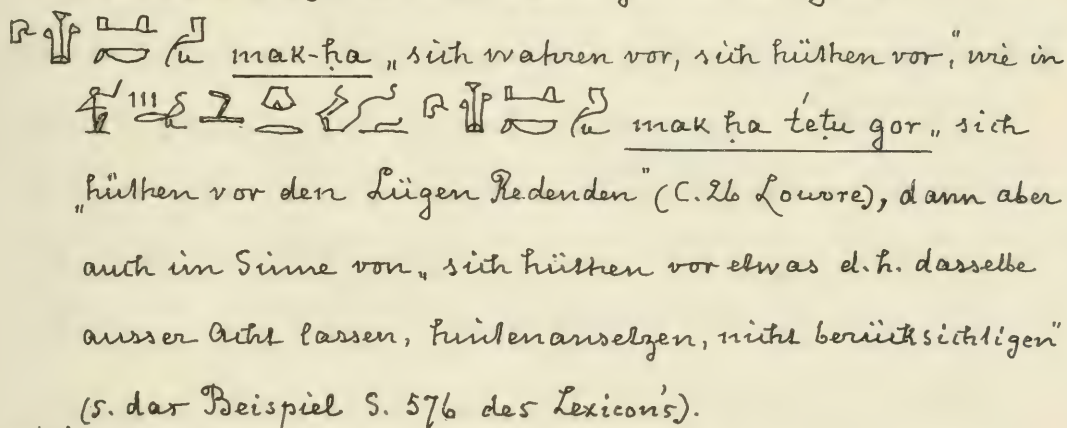 mak-ḥa „sich wahren vor, sich hüthen vor", wie in
mak ḥa t́eṭu gor „sich
„hüthen vor den Lügen Redenden" (C. 26 Louvre), dann aber
auch im Sinne von „sich hüthen vor etwas d.h. dasselbe
ausser Acht lassen, hintenansetzen, nicht berücksichtigen"
(s. das Beispiel S. 576 des Lexicon's).